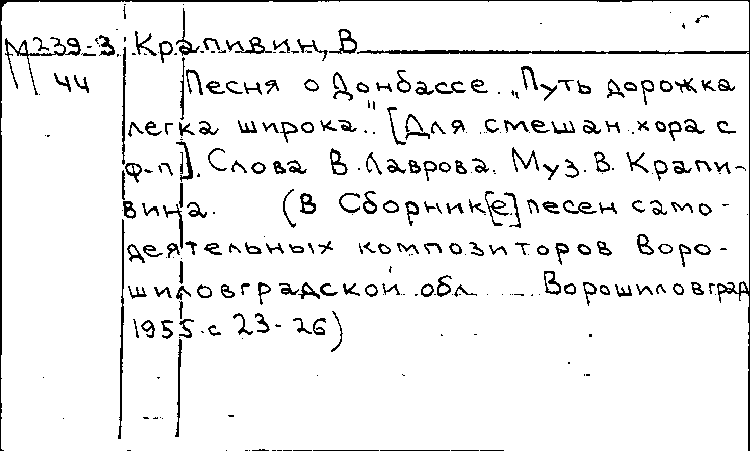 М239-3 Крапивин, В
44 Песня о Донбассе. „Путь дорожка
легка широка." [Для смешан. хора с
ф-п]. Слова В. Лаврова. Муз. В. Крапи-
вина. (В Сборник[е] песен само-
деятельных композиторов Воро-
шиловградской обл Ворошиловград
1955. с 23-26)